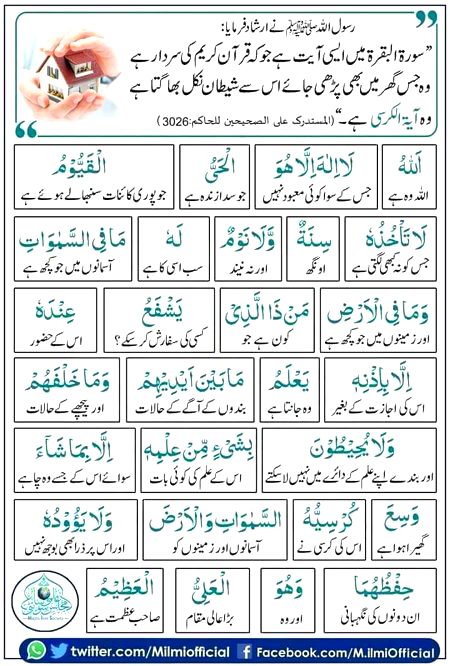 رسول اللہ ﷺ نے ارشاد فرمایا:
”سورۃ البقرۃ میں ایسی آیت ہے جو کہ قرآن کریم کی سردار ہے
وہ جس گھر میں بھی پڑھی جائے اس سے شیطان نکل بھاگتا ہے
وہ آیۃ الکرسی ہے۔“ (المستدرک علی الصحیحین للحاکم:3026)
اَللّٰهُ لَاۤ اِلٰهَ اِلَّا هُوَ اَلْحَیُّ الْقَیُّوْمُ
اللہ وہ ہے جس کے سوا کوئی معبود نہیں جو سدا زندہ ہے جو پوری کائنات سنبھالے ہوئے ہے
لَا تَاْخُذُهٗ سِنَةٌ وَّلَا نَوْمٌ لَهٗ مَا فِی السَّمٰوَاتِ
جس کو نہ کبھی لگتی ہے اونگھ اور نہ نیند سب اسی کا ہے آسمانوں میں جو کچھ ہے
وَمَا فِی الْاَرْضِ مَنْ ذَا الَّذِیْ یَشْفَعُ عِنْدَهٗ
اور زمینوں میں جو کچھ ہے کون ہے جو کسی کی سفارش کر سکے؟ اس کے حضور
اِلَّا بِاِذْنِهٖ یَعْلَمُ مَا بَیْنَ اَیْدِیْهِمْ وَمَا خَلْفَهُمْ
اس کی اجازت کے بغیر وہ جانتا ہے بندوں کے آگے کے حالات اور پیچھے کے حالات
وَلَا یُحِیْطُوْنَ بِشَیْءٍ مِّنْ عِلْمِهٖ اِلَّا بِمَا شَآءَ
اور بندے اپنے علم کے دائرے میں نہیں لا سکتے اس کے علم کی کوئی بات سوائے اس کے جسے وہ چاہے
وَسِعَ کُرْسِیُّهُ السَّمٰوَاتِ وَالْاَرْضَ وَلَا یَؤُوْدُهٗ
گھیرا ہوا ہے اس کی کرسی نے آسمانوں اور زمینوں کو اور اس پر ذرا بھی بوجھ نہیں
حِفْظُهُمَا وَهُوَ الْعَلِیُّ الْعَظِیْمُ
ان دونوں کی نگہبانی اور وہ بڑا عالی مقام صاحب عظمت ہے
twitter.com/Milmiofficial Facebook.com/M.IlmiOfficial